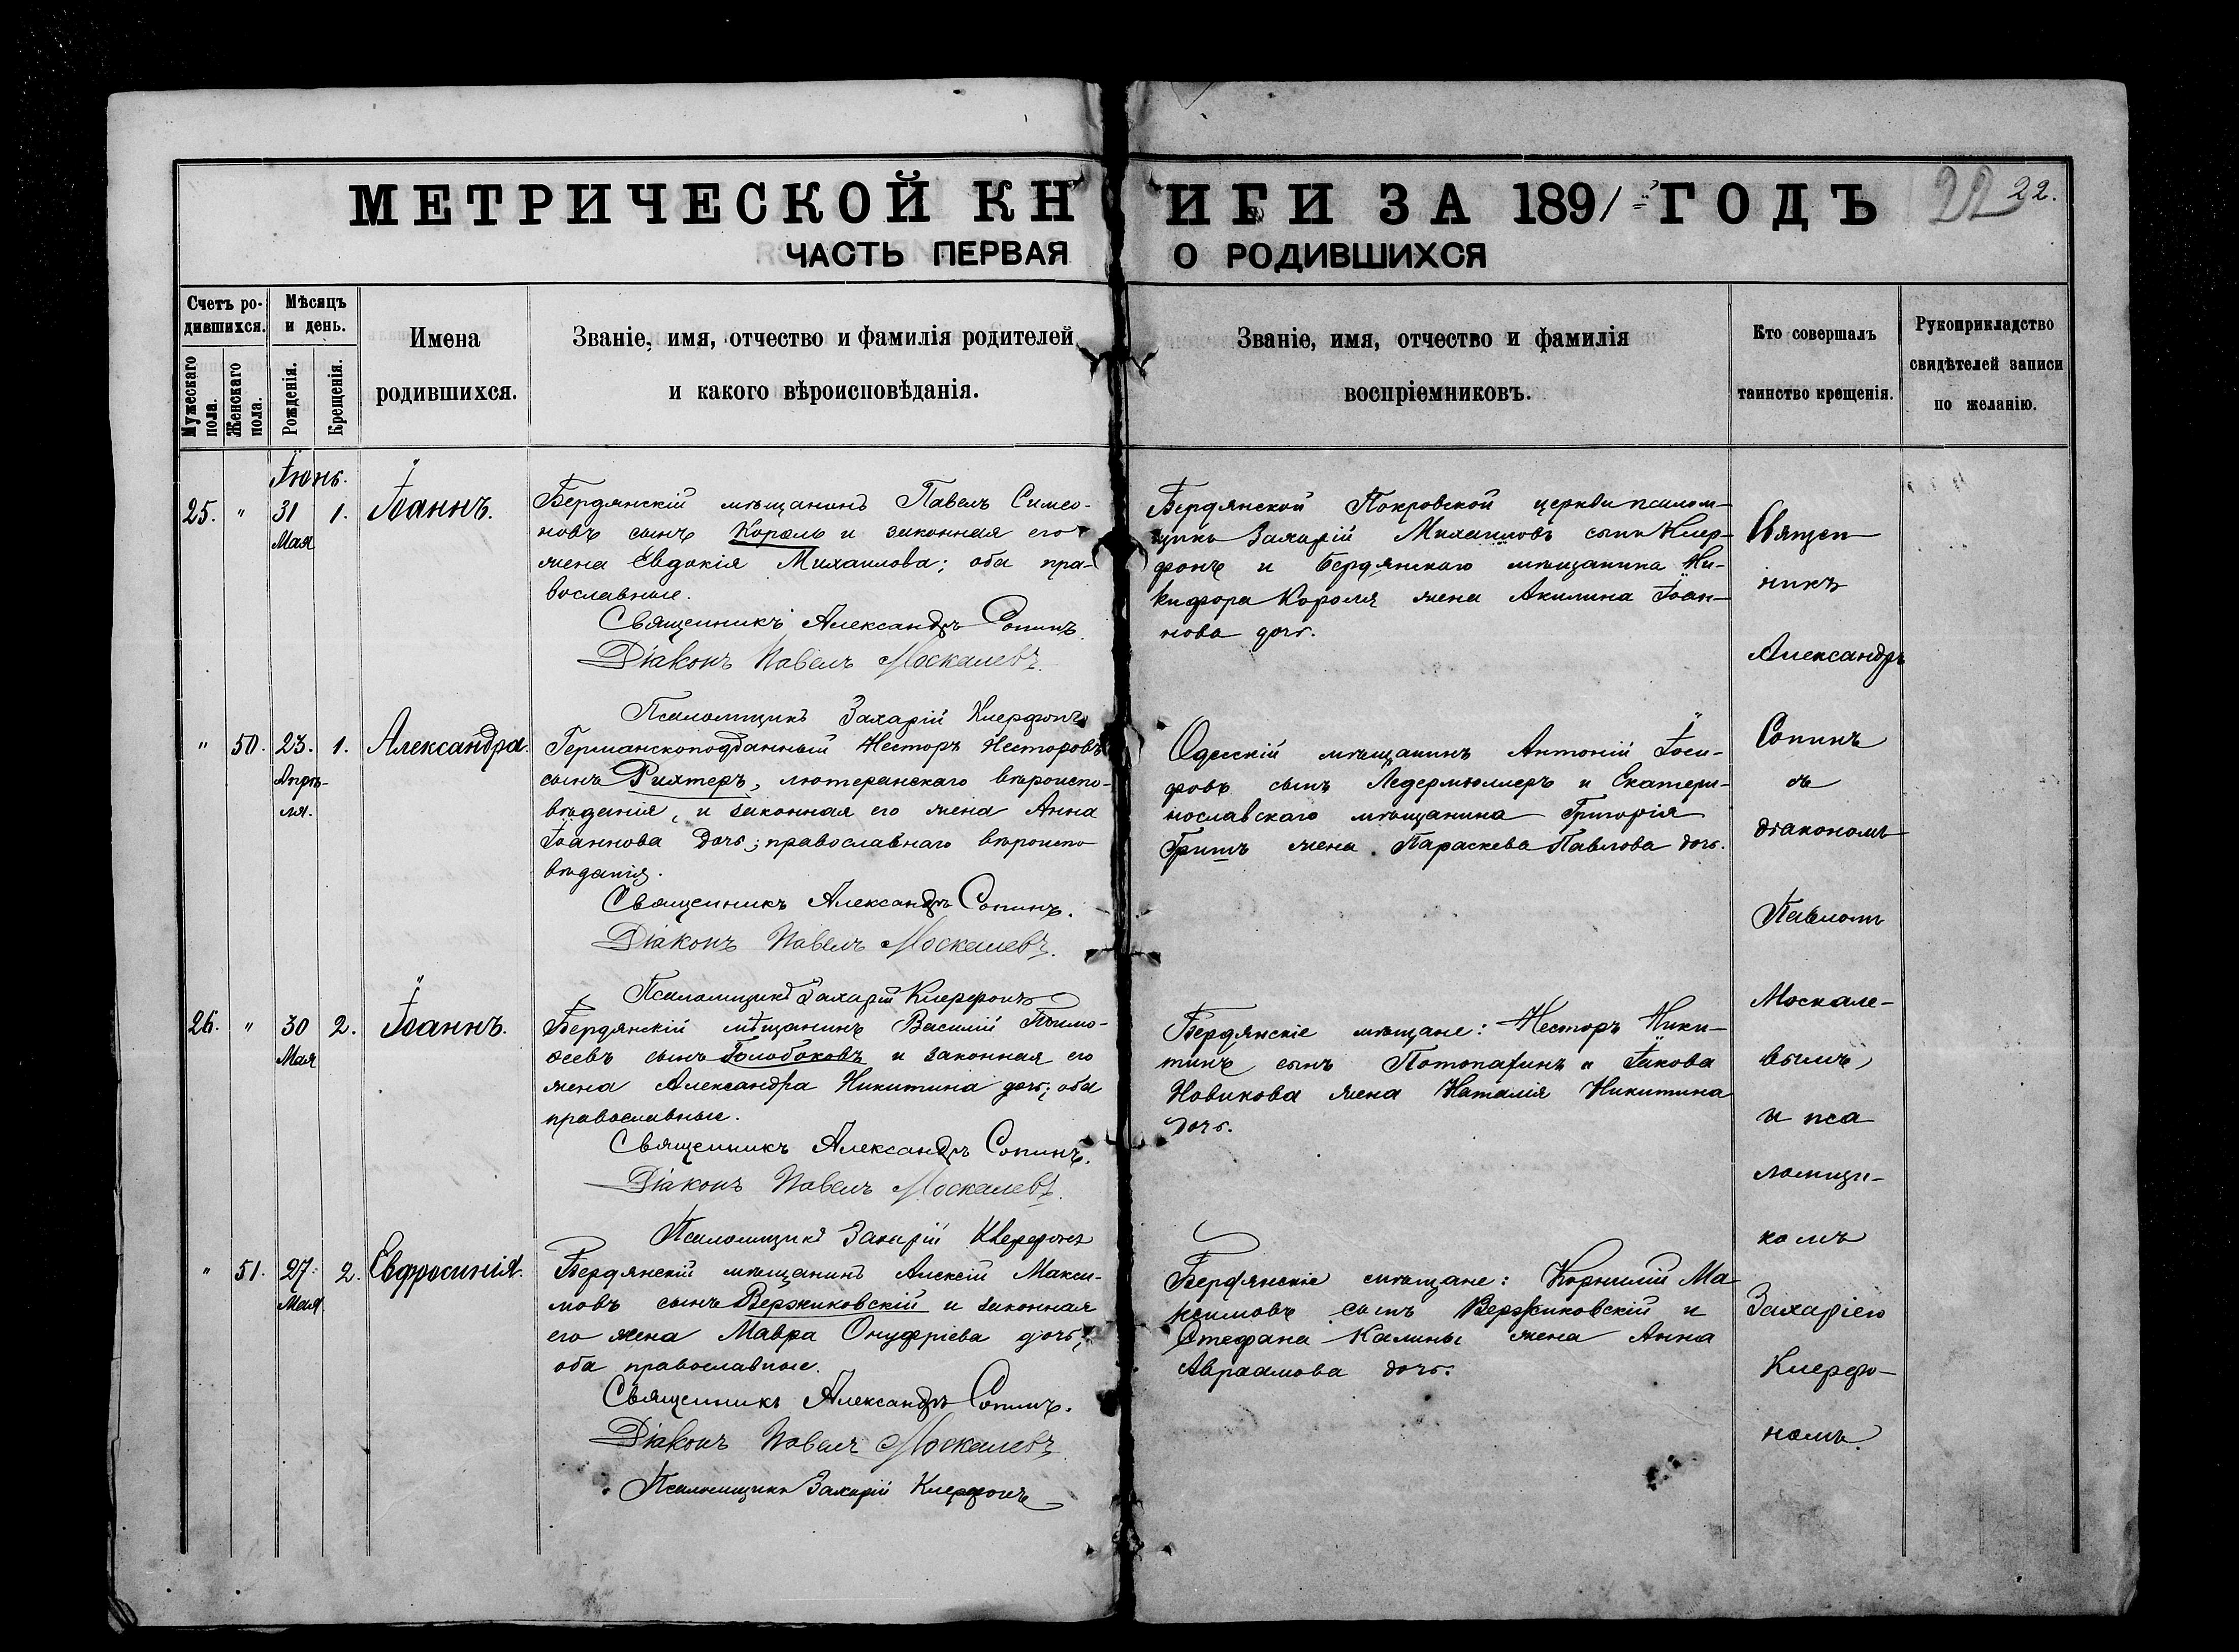 МЕТРИЧЕСКОЙ КНИГИ ЗА 1891 ГОДЪ
22 22.
ЧАСТЬ ПЕРВАЯ О РОДИВШИХСЯ
Счетъ ро-
дившихся.
Мужескаго
пола.
Женскаго
пола.
Мѣсяцъ
и день.
Рожденія.
Крещенія.
Имена
родившихся.
Званіе, имя, отчество и фамилія родителей
и какого вѣроисповѣданія.
Званіе, имя, отчество и фамилія
воспріемниковъ.
Кто совершалъ
таинство крещенія.
Рукоприкладство
свидѣтелей записи
по желанію.
Іюнь.
25. " 31 1. Іоаннъ.
Мая
Бердянскій мѣщанинъ Павелъ Симео-
новъ сынъ Король и законная его
жена Евдокія Михаилова; оба пра-
вославные.
Священникъ Александръ Сопинъ.
Діаконъ Павелъ Москалевъ.
Псаломщикъ Захарій Клерфонъ
Бердянской Покровской церкви псалом-
щикъ Захарій Михаиловъ сынъ Клер-
фонъ и Бердянскаго мѣщанина Ни-
кифора Короля жена Акилина Іоан-
нова дочь.
" 50. 23. 1. Александра.
Апрѣ-
ля.
Германскоподданный Несторъ Несторовъ
сынъ Рихтеръ, лютеранскаго вѣроиспо-
вѣданія, и законная его жена Анна
Іоаннова дочь; православнаго вѣроиспо-
вѣданія.
Священникъ Александръ Сопинъ.
Діаконъ Павелъ Москалевъ.
Псаломщикъ Захарій Клерфонъ
Одесскій мѣщанинъ Антоній Іоси-
фовъ сынъ Ледермюллеръ и Екатери-
нославскаго мѣщанина Григорія
Гришъ жена Параскева Павлова дочь.
26. " 30 2. Іоаннъ.
Мая
Бердянскій мѣщанинъ Василій Тимо-
ѳеевъ сынъ Голобоковъ и законная его
жена Александра Никитина дочь; оба
православные.
Священникъ Александръ Сопинъ.
Діаконъ Павелъ Москалевъ.
Псаломщикъ Захарій Клерфонъ
Бердянскіе мѣщане: Несторъ Ники-
тинъ сынъ Потопахинъ и Іакова
Новикова жена Наталія Никитина
дочь.
" 51. 27. 2. Евфросинія.
Мая
Бердянскій мѣщанинъ Алексій Макси-
мовъ сынъ Вержиковскій и законная
его жена Мавра Онуфріева дочь;
оба православные.
Священникъ Александръ Сопинъ.
Діаконъ Павелъ Москалевъ
Псаломщикъ Захарій Клерфонъ
Бердянскіе мѣщане: Корнилій Ма
ксимовъ сынъ Вержиковскій и
Стефана Калины жена Анна
Авраамова дочь.
Священ
никъ
Александръ
Сопинъ
съ
діакономъ
Павломъ
Москале-
вымъ,
и пса
ломщи-
комъ
Захаріею
Клерфо-
номъ.